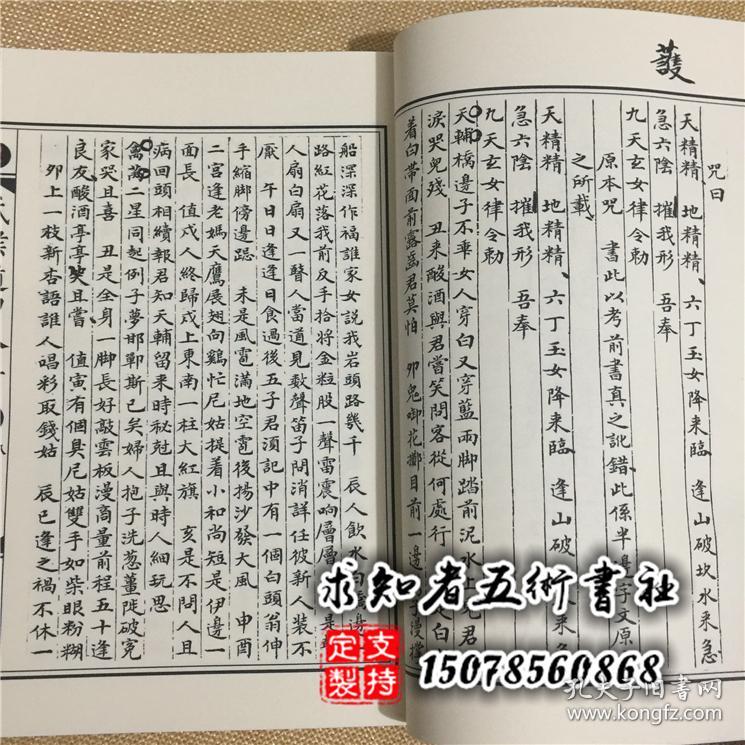 護
咒曰
天精精 地精精、六丁玉女降来臨 逢山破坎水来急
急六陰 摧我形 吾奉
九天玄女律令勅
原本咒 書此以考前書真之訛錯、此係半 子文原
之所載、
天精精、地精精、六丁玉女降来臨 逢山破 来急
急六陰 摧我形 吾奉
九天玄女律令勅
天輔橋邊子不乖女人穿白又穿藍兩脚踏前泥水 君
淚哭兒殘 丑来酸酒與君嘗笑問客從何處行 白
着白帶面前露齒君莫怕 卯鬼啣花擲目前一邊 子慢撑
船深深作福誰家女說我岩頭路幾千 辰人飲水白 邊
路紅花落我前反手拾將金粒股一聲雷震响層層 是
人扇白扇又一瞖人當道見數聲笛子問消詳任彼新人裝不
厭 午日日逢逢日食過後五子君須記中有一個白頭翁伸
手縮脚傍邊踮 未是風雹滿地空雹後揚沙發大風 申酉
二宮逢老媽天鷹展翅向鷄忙尼姑提着小和尚短是伊邊一
面長 值戌人終歸戍上東南一柱大紅旗 亥是不問人且
病回頭相續報君知天輔留来時祕尅且與時人細玩思
禽 二星同起例子夢邯鄲斯已矣婦人抱子洗葱薑陡破宽
家哭且喜 丑是全身一脚長好敲雲板漫高量前程五十逢
良友酸酒亭亭笑且嘗 值寅有個具尼姑雙手如柴眼粉糊
卯上一枝新杏語誰人唱彩取錢姑 辰巳逢之禍不休一
求知者五術書社
支持定製
15078560868
孔夫子旧書网
www.kongfz.com